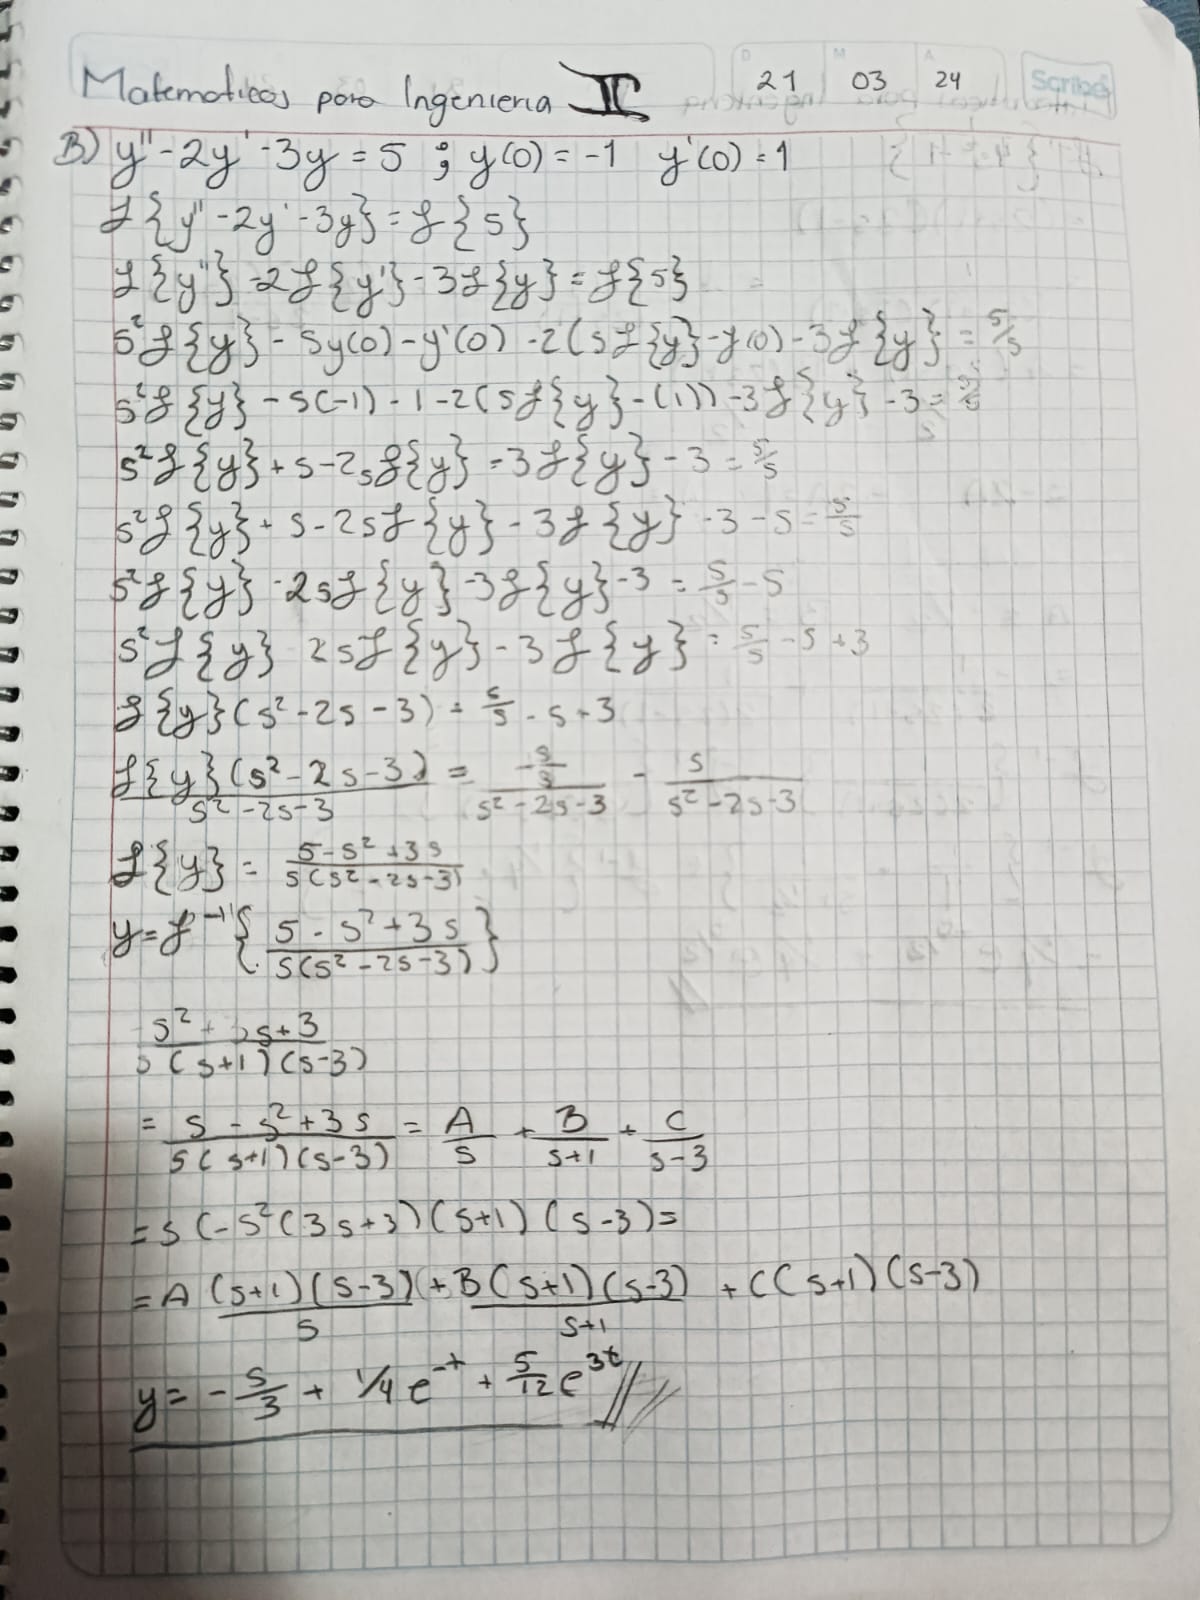 Matematicas para Ingenieria II
D M A
21 03 24
Scribe
B) y'' - 2y' - 3y = 5 ; y(0) = -1 y'(0) = 1
ℒ{y'' - 2y' - 3y} = ℒ{5}
ℒ{y''} - 2ℒ{y'} - 3ℒ{y} = ℒ{5}
s²ℒ{y} - sy(0) - y'(0) - 2(sℒ{y} - y(0) - 3ℒ{y} = 5/s
s²ℒ{y} - s(-1) - 1 - 2(sℒ{y} - (1)) - 3ℒ{y} - 3 =
s²ℒ{y} + s - 2sℒ{y} - 3ℒ{y} - 3 = 5/s
s²ℒ{y} + s - 2sℒ{y} - 3ℒ{y} - 3 - s = 5/s
s²ℒ{y} - 2sℒ{y} - 3ℒ{y} - 3 = 5/s - s
s²ℒ{y} 2sℒ{y} - 3ℒ{y} = 5/s - s + 3
ℒ{y}(s² - 2s - 3) = 5/s - s + 3
ℒ{y}(s² - 2s - 3) / s² - 2s - 3 = -5/s / s² - 2s - 3 - s / s² - 2s - 3
ℒ{y} = 5 - s² + 3s / s(s² - 2s - 3)
y = ℒ⁻¹{5 - s² + 3s / s(s² - 2s - 3)}
s² + s + 3 / s(s+1)(s-3)
= 5 - s² + 3s / s(s+1)(s-3) = A/s + B/s+1 + C/s-3
= s(-s²(3s+3)(s+1)(s-3) =
= A(s+1)(s-3)/s (+ B(s+1)(s-3)/s+1 + C(s+1)(s-3)
y = -5/3 + 1/4 e^-t + 5/12 e^3t //